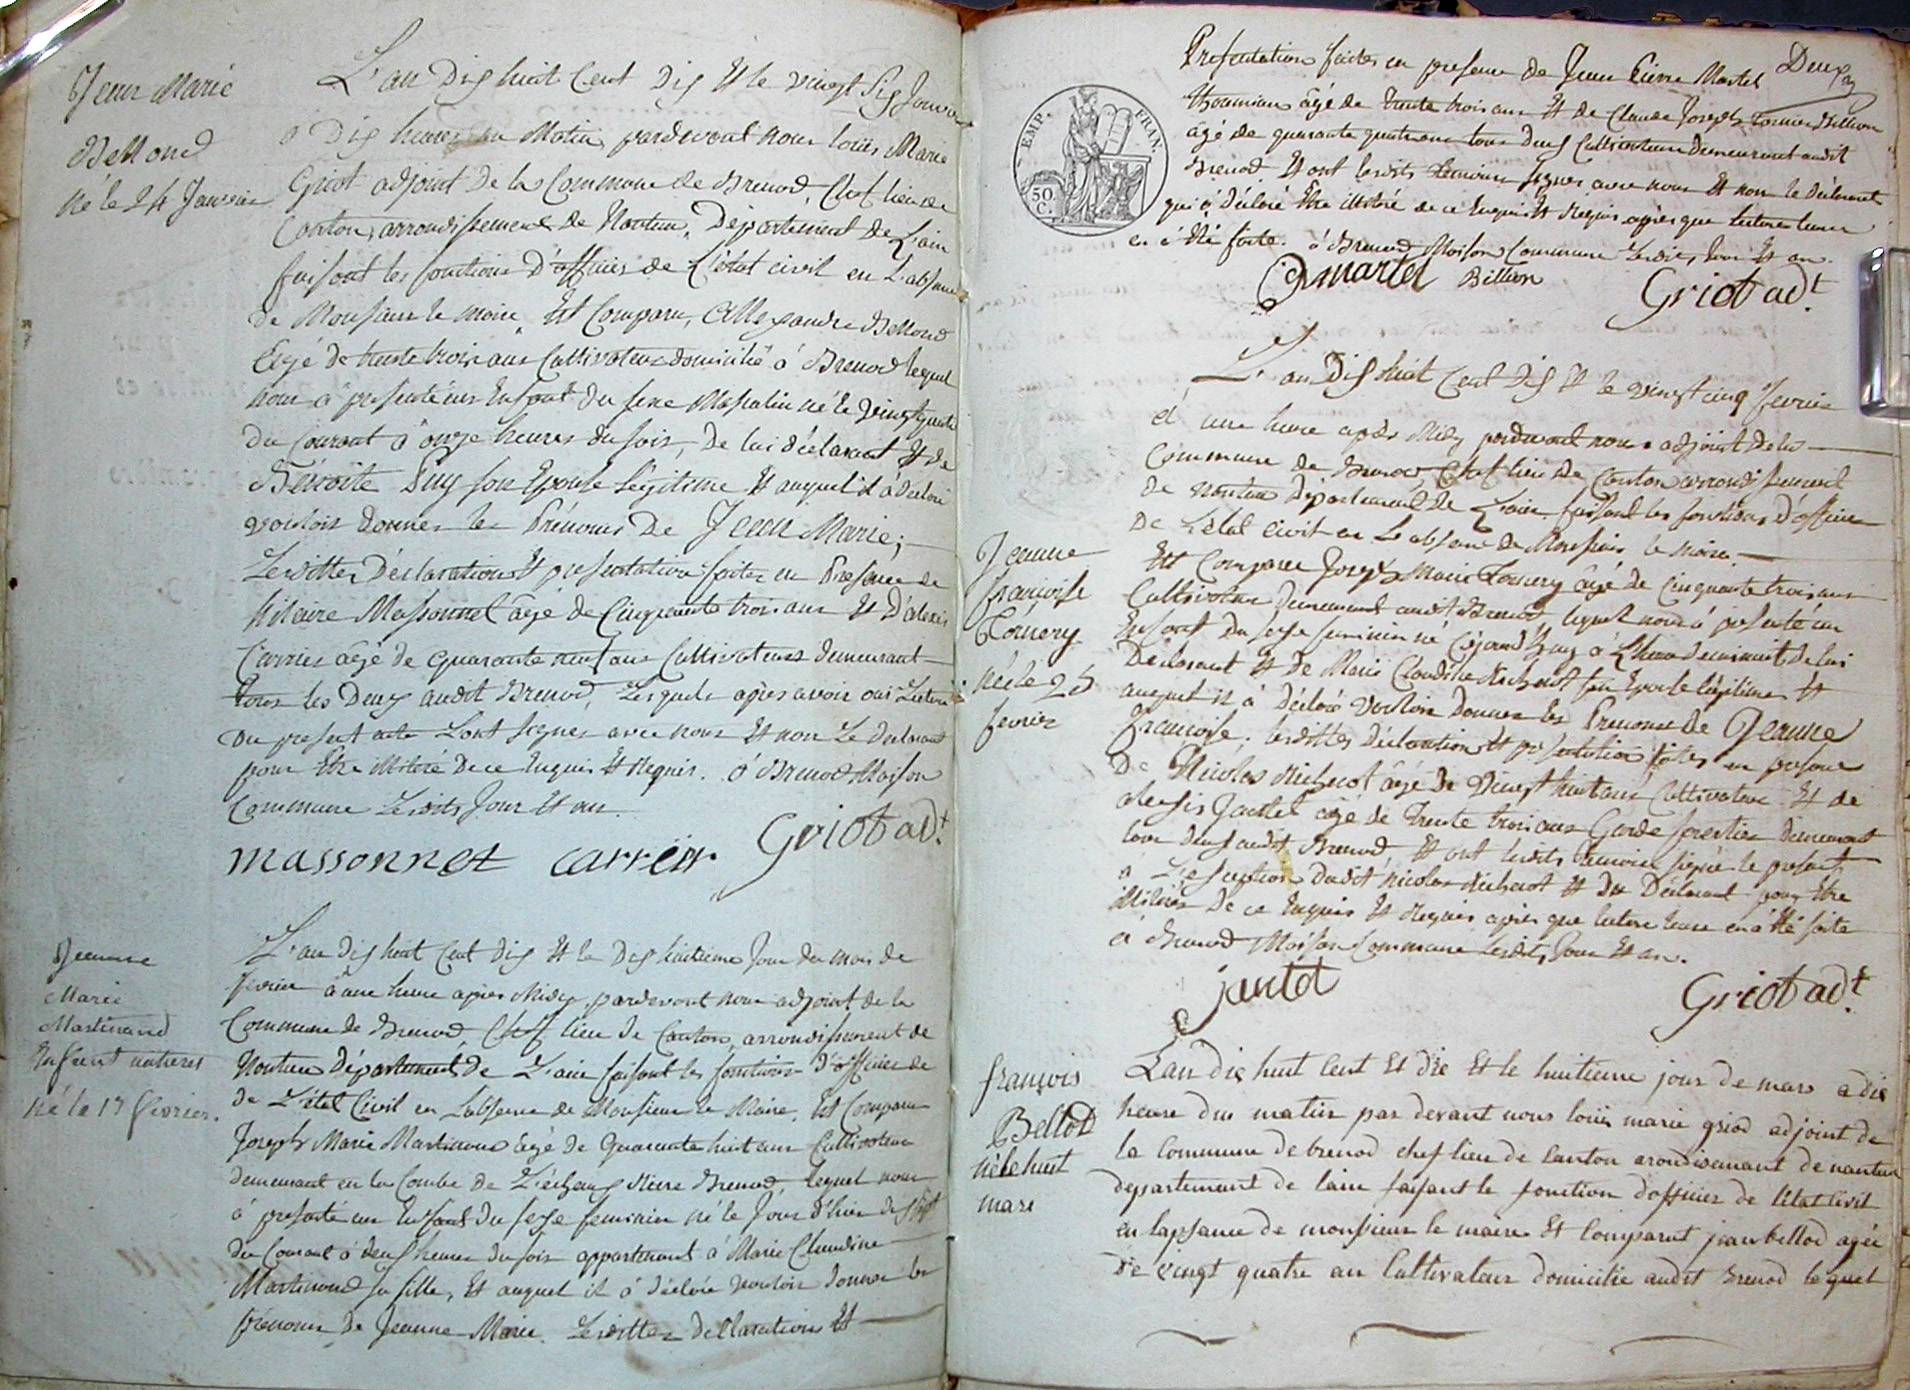 Jean Marie
Bellond
né le 24 Janvier
L'an Dix huit Cent Dix Et le vingt six Janvier
à Dix heures du Matin pardevant nous loüis Marie
Griot adjoint de la Commune de Brenod, Chef lieu de
Canton, arrondissement de Nantua, Département de L'ain
faisant les fonctions D'officier de L'état civil en L'absence
de Monsieur le maire, Est Comparu, Allexandre Bellond
âgé de trente trois ans Cultivateur domicilié à Brenod lequel
nous à présenté un Enfant du sexe Masculin né le vingt quatre
du Courant à onze heures du soir, de lui déclarant Et de
Bénoite Puy son Epouse légitime Et auquel il à déclaré
vouloir donner les Prénoms de Jean Marie;
Lesdittes Déclaration Et présentation faites en Présence de
hilaire Massonnet âgé de Cinquante trois ans Et D'alexis
Carrier âgé de quarante neuf ans Cultivateurs demeurant
tous les Deux audit Brenod, Lesquels après avoir oui Lecture
du présent acte L'ont signés avec nous Et non Le déclarant
pour Etre illitéré De ce Enquis Et Requis. à Brenod Maison
Commune Lesdits Jour Et an.
massonnet carrier Griot adt.
Jeanne
Marie
Martinand
Enfant naturel
né le 17 février.
L'an dix huit Cent Dix Et le Dix huitieme Jour du mois de
fevrier à une heure après Midy, pardevant nous adjoint de la
Commune de Brenod, Chef lieu de Canton, arrondissement de
Nantua Département de L'ain faisant les fonctions d'officier de
de L'état Civil en L'absence de Monsieur le Maire. Est Comparu
Joseph Marie Martinand âgé de Quarante huit ans Cultivateur
demeurant en la Combe de Brenod, lequel nous
à présenté un Enfant du sexe feminin né le Jour d'hier dix sept
du Courant à deux heures du soir appartenant à Marie Claudine
Martinand sa fille, Et auquel il à déclaré vouloir donner les
prénoms de Jeanne Marie. Lesdittes déclarations Et
Deux
Présentation faites en présence de Jean Pierre Martel
âgé de trente trois ans Et de Claude Joseph Billion
âgé de quarante quatre ans tous deux Cultivateurs demeurant audit
Brenod Et ont lesdits témoins signés avec nous Et non le déclarant
qui à déclaré Etre illitéré de ce Enquis Et Requis après que lecture leur
en à été faite. à Brenod Maison Commune Lesdits Jour Et an.
EMP. FRAN.
50. C.
martel Billion Griot adt.
Jeanne
françoise
Tournery
née le 25
fevrier
L'an Dix huit Cent Dix Et le vingt cinq fevrier
à une heure après Midy pardevant nous adjoint de la
Commune de Brenod, Chef lieu de Canton arrondissement
de Nantua Département de L'ain faisant les fonctions d'officier
de L'état Civil en L'absence de Monsieur le maire.
Est Comparu Joseph Marie Tournery âgé de Cinquante trois ans
Cultivateur demeurant audit Brenod, lequel nous à présenté un
Enfant du sexe feminin né Cejourd'huy à de lui
Déclarant Et de Marie Claudine Richerot son Epouse légitime Et
auquel il à déclaré vouloir Donner les Prenoms de Jeanne
françoise. lesdittes Déclaration Et présentation faites en présence
De Nicolas Richerot âgé de vingt huit ans Cultivateur Et de
alexis Jantet âgé de Trente trois ans Garde forestier demeurant
tous deux audit Brenod Et ont lesdits témoins signés le présent
à L'exception dudit Nicolas Richerot Et du Déclarant pour Etre
illitérés De ce Enquis Et Requis après que lecture leur en à été faite
à Brenod Maison Commune Lesdits Jour Et an.
jantet Griot adt.
françois
Bellod
né le huit
mars
Lan dix huit Cent Et dix Et le huitieme jour de mars a dix
heure du matin par devant nous loüis marie griod adjoint de
la Commune de brenod chef lieu de Canton arondisemant de nantua
departement de lain faisant le fonction d'officier de letat Civil
en lapsance de monsieur le maire Et Comparut jean bellod agée
de vingt quatre an Cultivateur domicilie audit Brenod lequel